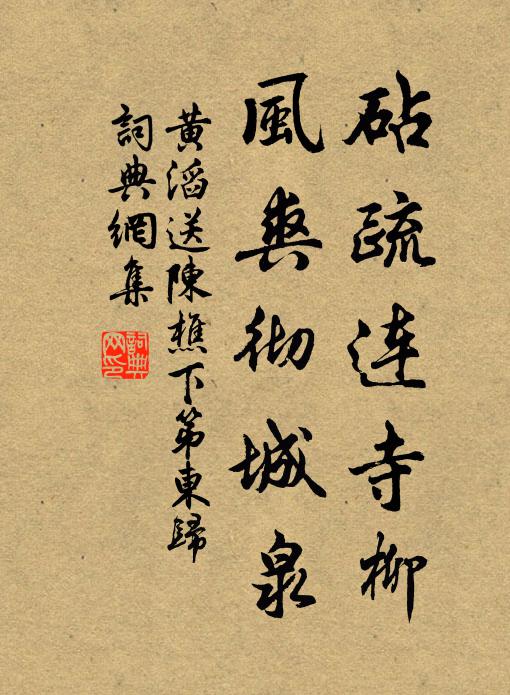 砧疏连寺柳
風爽彻城泉
黄滔送陳樵下第東歸
詞典網集
詞典网印